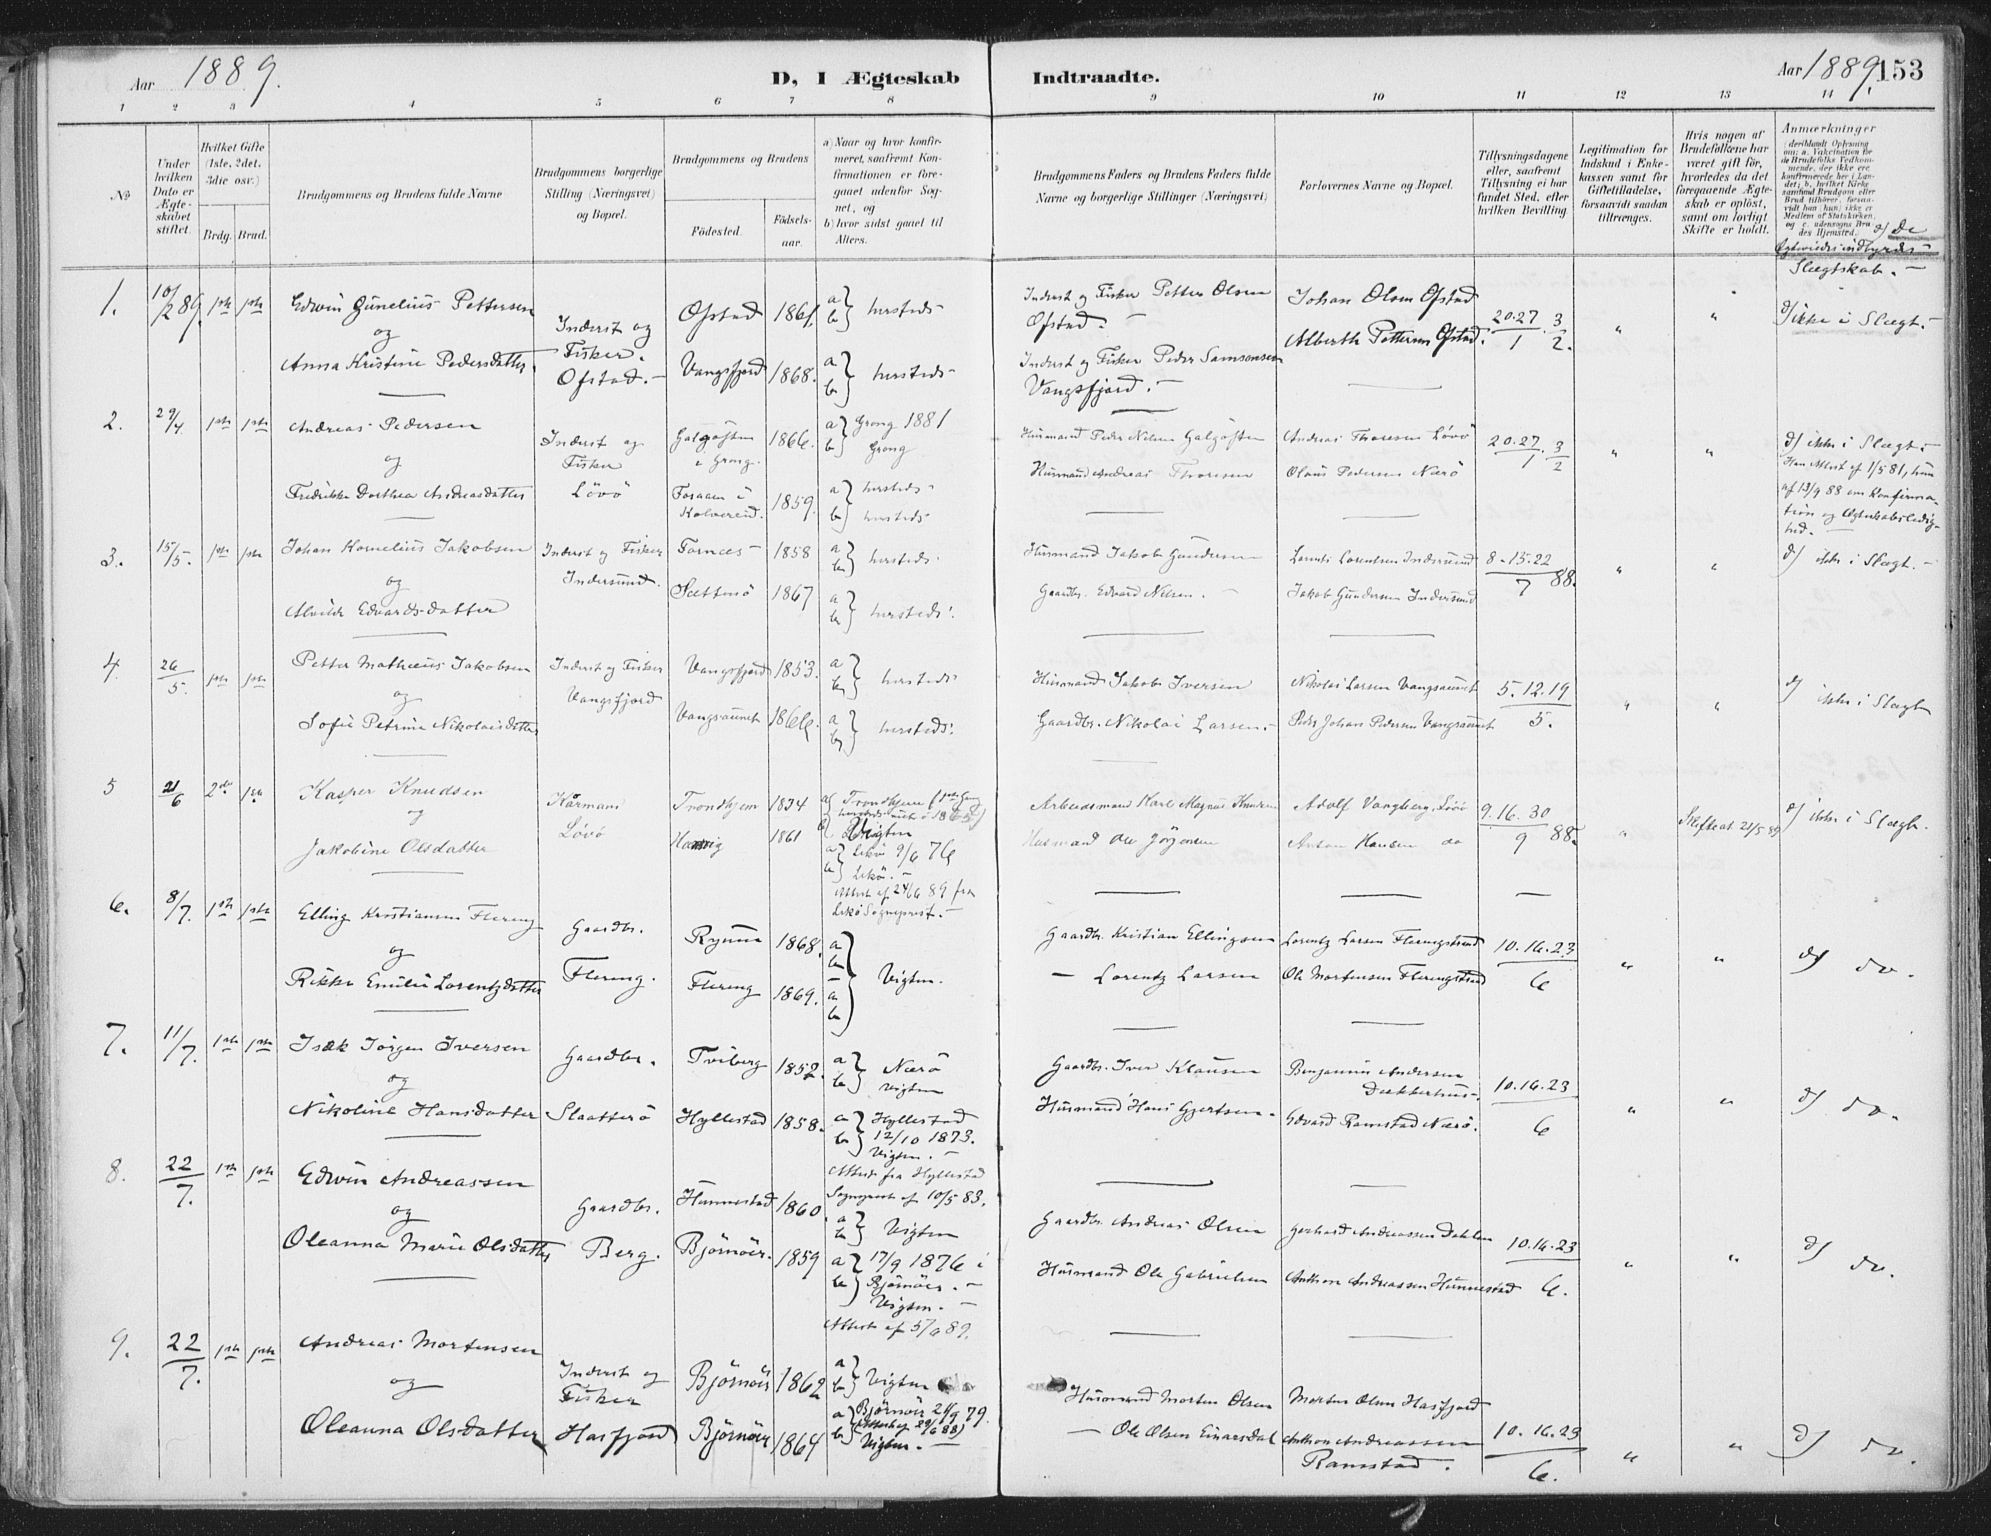 Aar 1889.
D, I Ægteskab Indtraadte.
Aar 1889. 153
1 2 3 4 5 6 7 8 9 10 11 12 13 14
№
Under hvilken Dato er Ægteskabet stiftet.
Hvilket Gifte (1ste, 2det, 3die osv.)
Brdg. Brud.
Brudgommens og Brudens fulde Navne
Brudgommens borgerlige Stilling (Næringsvei) og Bopæl.
Brudgommens og Brudens
Födested.
Födselsaar.
a) Naar og hvor konfirmeret, saafremt Konfirmationen er foregaaet udenfor Sognet, og
b) hvor sidst gaaet til Alters.
Brudgommens Faders og Brudens Faders fulde Navne og borgerlige Stillinger (Næringsvei)
Forlovernes Navne og Bopæl.
Tillysningsdagene eller, saafremt Tillysning ei har fundet Sted, efter hvilken Bevilling
Legitimation for Indskud i Enkekassen samt for Giftetilladelse, forsaavidt saadan tiltrænges.
Hvis nogen af Brudefolkene har været gift för, hvorledes da det foregaaende Ægteskab er oplöst, samt om lovligt Skifte er holdt.
Anmærkninger
d) de Ægteviedes indbyrdes Slægtskab. —
1. 10/2 89. 1ste 1ste Edwin Gunelius Pettersen
og
Anna Kristine Pedersdatter.
Inderst og Fisker. Ofstad. —
Ofstad 1861. a b } hersteds
Vangsfjord 1868. a b } hersteds
Inderst og Fisker Petter Olsen Ofstad. —
Inderst og Fisker Peder Samsonsen Vangsfjord. —
Johan Olsen Ofstad
Alberth Pettersen Ofstad.
20.27/1. 3/2. " " d) ikke i Slægt. —
2. 29/4 1ste 1ste Andreas Pedersen
og
Fredrikke Dorthea Andreasdatter
Inderst og Fisker Lövö
Galgöften i Grong. 1866. a b } Grong 1881 Grong
Foraaen i Kolvereid. 1859. a b } hersteds hersteds
Husmand Peder Nilsen Galgöften
Husmand Andreas Thoresen
Andreas Thoresen Lövö
Olaus Pedersen Nærö
20.27/1 3/2 " " d) ikke i Slægt. —
Han Attest af 1/5 81, hun af 13/9 88 om Konfirmation og Ægteskabsledighed. —
3. 15/5. 1ste 1ste Johan Kornelius Jakobsen
og
Alvilde Edvardsdatter
Inderst og Fisker Indersund.
Fornes 1858 a b } hersteds
Sættesö 1867 a b } hersteds.
Husmand Jakob Gundersen
Gaardbr. Edvard Nilsen. —
Lorents Lorentsen Indersund
Jakob Gundersen Indersund
8.15.22/7 88. " " d) ikke i Slægt. —
4. 26/5. 1ste 1ste Petter Matheus Jakobsen
og
Sofie Petrine Nikolaisdatter
Inderst og Fisker Vangsfjord
Vangsfjord 1853. a b } hersteds
Vangsaunet 1866. a b } hersteds.
Husmand Jakob Iversen
Gaardbr. Nikolai Larsen. —
Nikolai Larsen Vangsaunet
Peder Johan Pedersen Vangsaunet
5.12.19/5. " " d) ikke i Slægt
5 21/6 2det 1ste Kasper Knudsen
og
Jakobine Olsdatter
Lövö
Trondhjem 1834 a) Trondhjem
1861 Vigten
a b } Lekö 9/6 76 Lekö. —
Attest af 24/6 89 fra Lekö Sognepræst. —
Arbeidsmand Karl Magnus Knudsen
Husmand Ole Jörgensen
Adolf Vangberg, Lövö
Anton Hansen do
9.16.30/9 88. " Skifteat 21/5 89 d) ikke i Slægt.
6. 8/7. 1ste 1ste Elling Kristiansen Flereng
og
Rikke Emilie Lorentzdatter
Gaardbr. Flereng.
Ryum 1868. a b
Flereng 1869. a b } Vigten.
Gaardbr. Kristian Ellingsen
— Lorentz Larsen
Lorentz Larsen Flerengstrand
Ole Mortensen Flerengstrand
10.16.23/6 " " d) do.
7. 11/7. 1ste 1ste Isak Jörgen Iversen
og
Nikoline Hansdatter
Gaardbr. Slaatterö
Tviberg 1852. a b } Nærö Vigten
Hyllestad 1858. a b } Hyllestad 12/10 1873. Vigten. —
Attest fra Hyllestad Sognepræst af 10/5 83.
Gaardbr. Iver Klausen
Husmand Hans Gjertsen.
Benjamin Andersen Dækkerhus.
Edvard Ramstad Nærö.
10.16.23/6 " " d) do.
8. 22/7. 1ste 1ste Edvin Andreassen
og
Oleanna Marie Olsdatter
Gaardbr. Berg.
Hunnestad 1860. a b } Vigten
Björnöer. 1859 a b } 17/9 1876 i Björnöer. — Vigten. —
Attest af 5/7 89.
Gaardbr. Andreas Olsen
Husmand Ole Gabrielsen
Gerhard Andreassen Dahlen
Anthon Andreassen Hunnestad
10.16.23/6. " " d) do.
9. 22/7. 1ste 1ste Andreas Mortensen
og
Oleanna Olsdatter
Inderst og Fisker Hasfjord
Björnöer 1862 a b } Vigten
Björnöer 1864 a b } Björnöer 21/9 79. Vigten. —
Husmand Morten Olsen
— Ole Olsen Einarsdal
Morten Olsen Hasfjord
Anthon Andreassen Ramstad.
10.16.23/6. " " d) do.